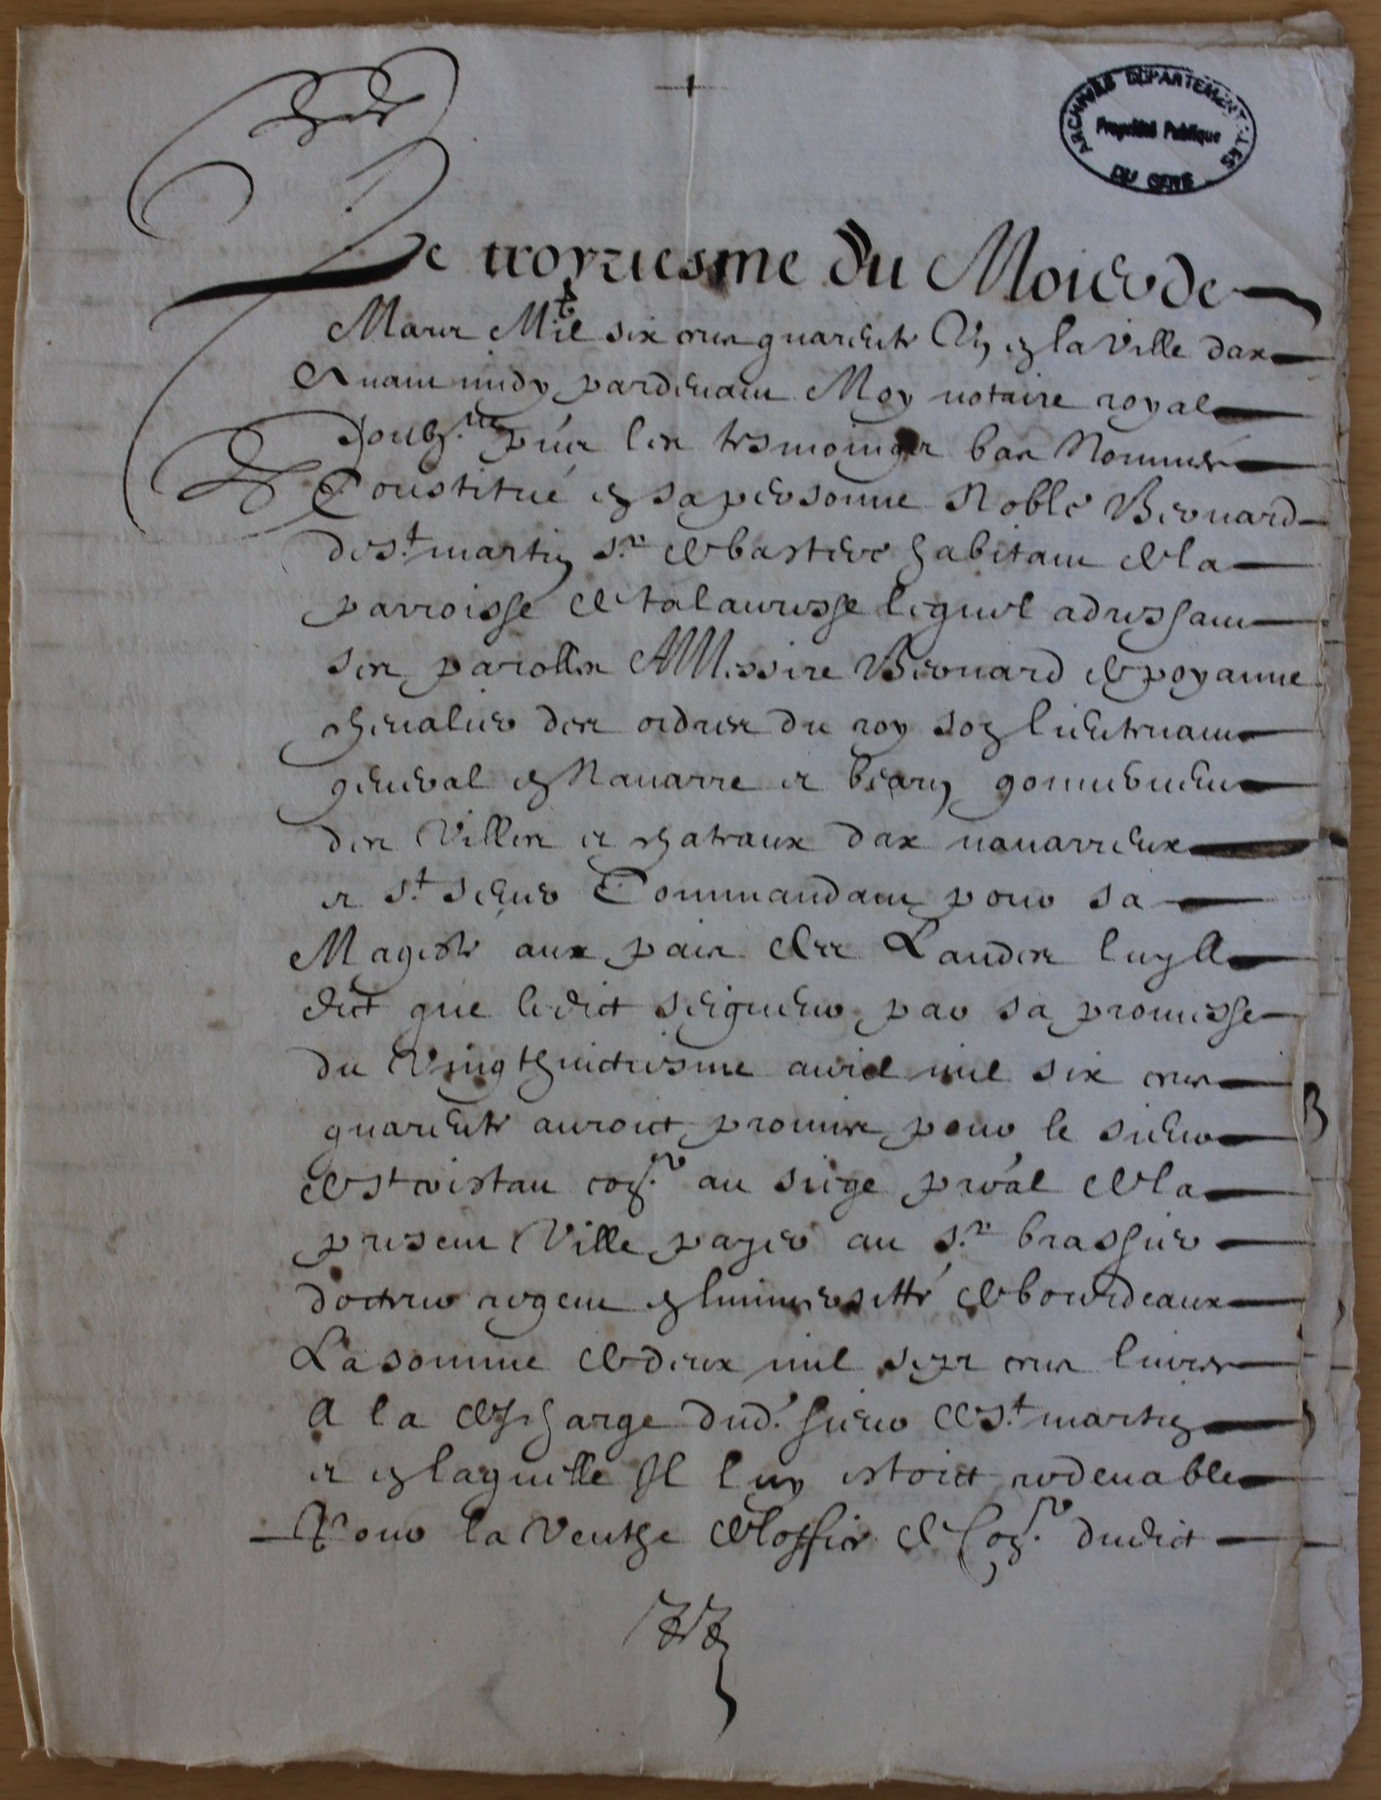 ARCHIVES DEPARTEMENTALES
Propriété Publique
DU GERS
Le troyziesme du Moies de
Mars Mil six cens quarente Un en la Ville dax
Avant midy pardevant Moy notaire royal
soubz.né pnt les tesmoings bas Nommés
Constitué en sa personne Noble Bernard
de st martin sr de bastere habitant de la
parroisse de talauresse lequel adressant
ses parolles A Messire Bernard de poyanne
chevalier des ordres du roy son lieutenant
general en Navarre et bearn gouverneur
des Villes et chateaux dax navarreux
et st sever Commandant pour sa
Magesté aux pais des Landes luy a
dict que ledict seigneur par sa promesse
du Vingthuictiesme avril mil six cens
quarente auroict promis pour le sieur
de st cristau conr au siege pnal de la
present Ville payer au sr brassier
docteur regent en luniversitté de bourdeaux
La somme de deux mil sept cens livres
A la descharge dud. sieur de st martin
et en laquelle Il luy estoict redevable
Pour la venthe de loffice de Conr dudict